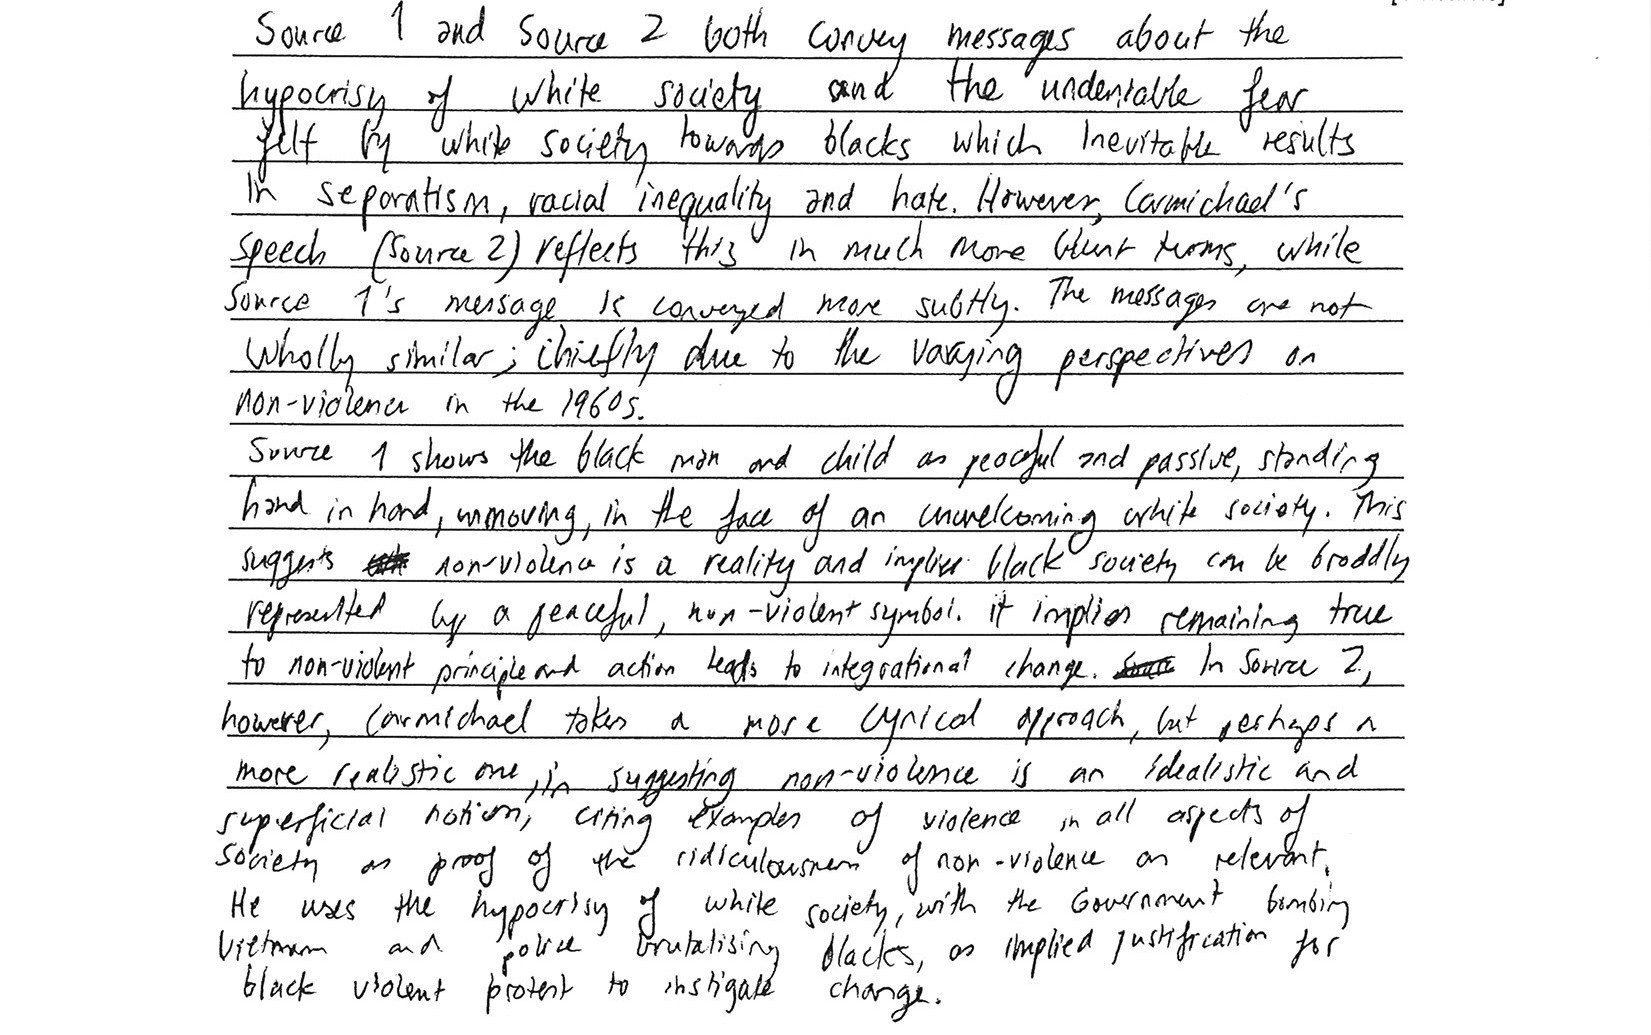 Source 1 and Source 2 both convey messages about the
hypocrisy of white society and the undeniable fear
felt by white society towards blacks which Inevitable results
in separatism, racial inequality and hate. However, Carmichael's
speech (Source 2) reflects this in much more blunt terms, while
Source 1's message is conveyed more subtly. The messages are not
wholly similar; chiefly due to the varying perspectives on
non-violence in the 1960s.
Source 1 shows the black man and child as peaceful and passive, standing
hand in hand, unmoving, in the face of an unwelcoming white society. This
suggests non-violence is a reality and implies black society can be broadly
represented by a peaceful, non-violent symbol. it implies remaining true
to non-violent principle and action leads to integrational change. In Source 2,
however, Carmichael takes a more cynical approach, but perhaps a
more realistic one, in suggesting non-violence is an idealistic and
superficial notion, citing examples of violence in all aspects of
society as proof of the ridiculousness of non-violence as relevant.
He uses the hypocrisy of white society, with the Government bombing
Vietnam and police brutalising blacks, as implied justification for
black violent protest to instigate change.